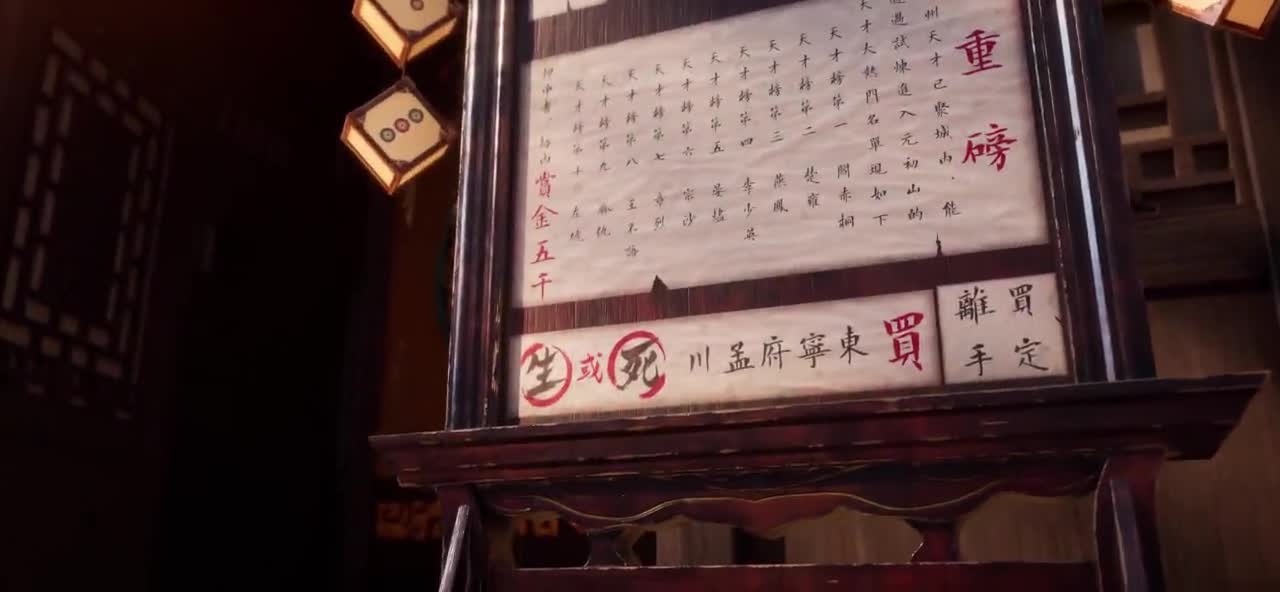 重磅
州天才已聚城內，能
過試煉進入元初山的
天才大熱門名單現如下
天才榜第一 閻赤桐
天才榜第二 楚雍
天才榜第三 燕鳳
天才榜第四 李少英
天才榜第五 晏燼
天才榜第六 宗沙
天才榜第七 章烈
天才榜第八 王不語
天才榜第九 仇
天才榜第十
賞金五千
買定
離手
買東寧府孟川
死或生